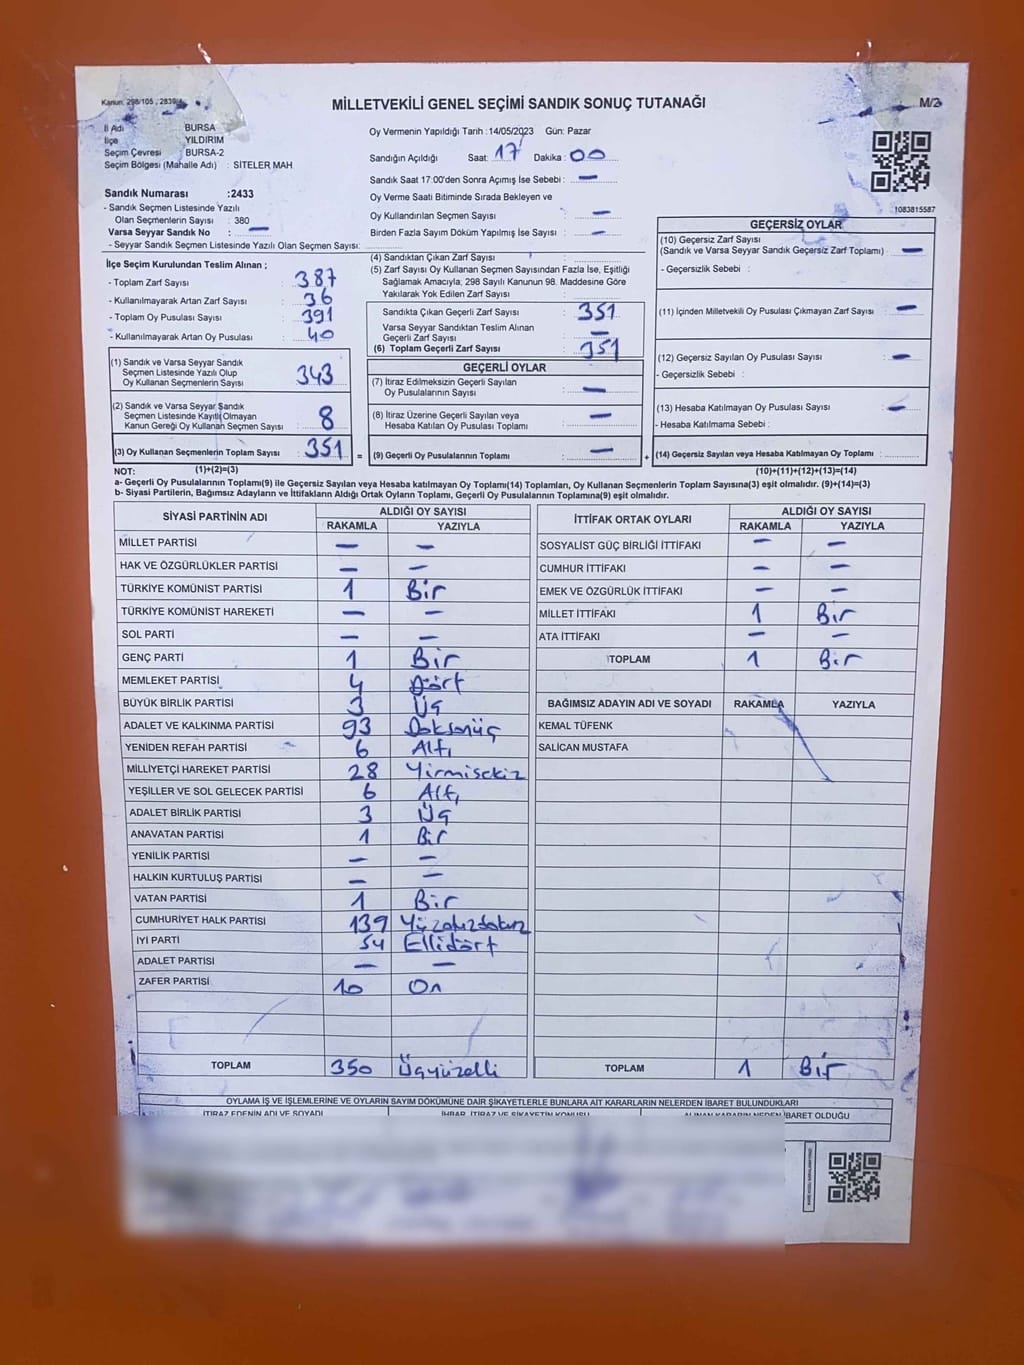 Kanun: 298/105 , 2839/4
MİLLETVEKİLİ GENEL SEÇİMİ SANDIK SONUÇ TUTANAĞI
M/2
İl Adı BURSA
İlçe YILDIRIM
Seçim Çevresi BURSA-2
Seçim Bölgesi (Mahalle Adı) : SİTELER MAH.
Sandık Numarası :2433
- Sandık Seçmen Listesinde Yazılı
Olan Seçmenlerin Sayısı : 380
Varsa Seyyar Sandık No : —
- Seyyar Sandık Seçmen Listesinde Yazılı Olan Seçmen Sayısı:
Oy Vermenin Yapıldığı Tarih : 14/05/2023 Gün: Pazar
Sandığın Açıldığı Saat: 17 Dakika : 00
Sandık Saat 17:00'den Sonra Açımış İse Sebebi : —
Oy Verme Saati Bitiminde Sırada Bekleyen ve
Oy Kullandırılan Seçmen Sayısı : —
Birden Fazla Sayım Döküm Yapılmış İse Sayısı : —
1083815587
İlçe Seçim Kurulundan Teslim Alınan ;
- Toplam Zarf Sayısı : 387
- Kullanılmayarak Artan Zarf Sayısı : 36
- Toplam Oy Pusulası Sayısı : 391
- Kullanılmayarak Artan Oy Pusulası : 40
(1) Sandık ve Varsa Seyyar Sandık
Seçmen Listesinde Yazılı Olup
Oy Kullanan Seçmenlerin Sayısı : 343
(2) Sandık ve Varsa Seyyar Sandık
Seçmen Listesinde Kayıtlı Olmayan
Kanun Gereği Oy Kullanan Seçmen Sayısı : 8
(3) Oy Kullanan Seçmenlerin Toplam Sayısı : 351 =
(4) Sandıktan Çıkan Zarf Sayısı :
(5) Zarf Sayısı Oy Kullanan Seçmen Sayısından Fazla İse, Eşitliği
Sağlamak Amacıyla, 298 Sayılı Kanunun 98. Maddesine Göre
Yakılarak Yok Edilen Zarf Sayısı :
Sandıkta Çıkan Geçerli Zarf Sayısı : 351
Varsa Seyyar Sandıktan Teslim Alınan
Geçerli Zarf Sayısı : —
(6) Toplam Geçerli Zarf Sayısı : 351
GEÇERLİ OYLAR
(7) İtiraz Edilmeksizin Geçerli Sayılan
Oy Pusulalarının Sayısı : —
(8) İtiraz Üzerine Geçerli Sayılan veya
Hesaba Katılan Oy Pusulası Toplamı : —
(9) Geçerli Oy Pusulalarının Toplamı : — +
GEÇERSİZ OYLAR
(10) Geçersiz Zarf Sayısı
(Sandık ve Varsa Seyyar Sandık Geçersiz Zarf Toplamı) : —
- Geçersizlik Sebebi :
(11) İçinden Milletvekili Oy Pusulası Çıkmayan Zarf Sayısı : —
(12) Geçersiz Sayılan Oy Pusulası Sayısı : —
- Geçersizlik Sebebi :
(13) Hesaba Katılmayan Oy Pusulası Sayısı : —
- Hesaba Katılmama Sebebi :
(14) Geçersiz Sayılan veya Hesaba Katılmayan Oy Toplamı :
NOT: (1)+(2)=(3) (10)+(11)+(12)+(13)=(14)
a- Geçerli Oy Pusulalarının Toplamı(9) ile Geçersiz Sayılan veya Hesaba katılmayan Oy Toplamı(14) Toplamları, Oy Kullanan Seçmenlerin Toplam Sayısına(3) eşit olmalıdır. (9)+(14)=(3)
b- Siyasi Partilerin, Bağımsız Adayların ve İttifakların Aldığı Ortak Oyların Toplamı, Geçerli Oy Pusulalarının Toplamına(9) eşit olmalıdır.
SİYASİ PARTİNİN ADI ALDIĞI OY SAYISI
RAKAMLA YAZIYLA
MİLLET PARTİSİ — —
HAK VE ÖZGÜRLÜKLER PARTİSİ — —
TÜRKİYE KOMÜNİST PARTİSİ 1 Bir
TÜRKİYE KOMÜNİST HAREKETİ — —
SOL PARTİ — —
GENÇ PARTİ 1 Bir
MEMLEKET PARTİSİ 4 Dört
BÜYÜK BİRLİK PARTİSİ 3 Üç
ADALET VE KALKINMA PARTİSİ 93 Doksanüç
YENİDEN REFAH PARTİSİ 6 Altı
MİLLİYETÇİ HAREKET PARTİSİ 28 Yirmisekiz
YEŞİLLER VE SOL GELECEK PARTİSİ 6 Altı
ADALET BİRLİK PARTİSİ 3 Üç
ANAVATAN PARTİSİ 1 Bir
YENİLİK PARTİSİ — —
HALKIN KURTULUŞ PARTİSİ — —
VATAN PARTİSİ 1 Bir
CUMHURİYET HALK PARTİSİ 139
İYİ PARTİ 54 Ellidört
ADALET PARTİSİ — —
ZAFER PARTİSİ 10 On
TOPLAM 350 Üçyüzelli
İTTİFAK ORTAK OYLARI ALDIĞI OY SAYISI
RAKAMLA YAZIYLA
SOSYALİST GÜÇ BİRLİĞİ İTTİFAKI — —
CUMHUR İTTİFAKI — —
EMEK VE ÖZGÜRLÜK İTTİFAKI — —
MİLLET İTTİFAKI 1 Bir
ATA İTTİFAKI — —
TOPLAM 1 Bir
BAĞIMSIZ ADAYIN ADI VE SOYADI RAKAMLA YAZIYLA
KEMAL TÜFENK
SALİCAN MUSTAFA
TOPLAM 1 Bir
OYLAMA İŞ VE İŞLEMLERİNE VE OYLARIN SAYIM DÖKÜMÜNE DAİR ŞİKAYETLERLE BUNLARA AİT KARARLARIN NELERDEN İBARET BULUNDUKLARI
İTİRAZ EDENİN ADI VE SOYADI İHBAR, İTİRAZ VE ŞİKAYETİN KONUSU ALINAN KARARIN NEDEN İBARET OLDUĞU